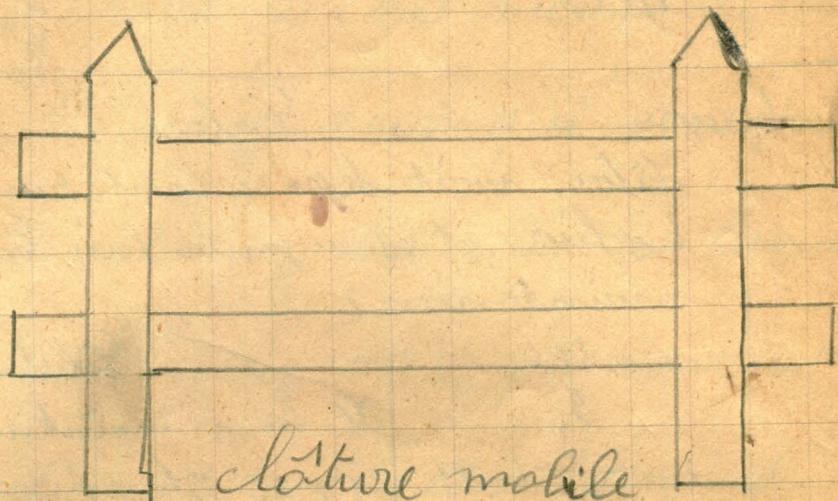 clôture mobile